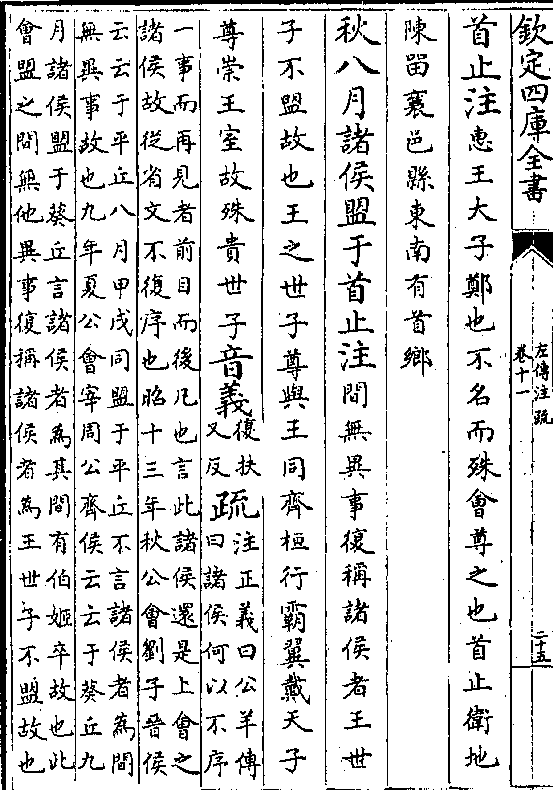 欽定四庫全書
左傳注疏
卷十一
二十五
首止注惠王大子鄭也不名而殊會尊之也首止衛地
陳畱襄邑縣東南有首鄉
秋八月諸侯盟于首止注間無異事復稱諸侯者王世
子不盟故也王之世子尊與王同齊桓行霸翼戴天子
尊崇王室故殊貴世子音義復扶又反疏注正義曰公羊傳曰諸侯何以不序
一事而再見者前目而後凡也言此諸侯還是上會之
諸侯故從省文不復序也昭十三年秋公會劉子晉侯
云云于平丘八月甲戌同盟于平丘不言諸侯者為間
無異事故也九年夏公會宰周公齊侯云云于葵丘九
月諸侯盟于葵丘言諸侯者為其間有伯姬卒故也此
會盟之間無他異事復稱諸侯者為王世子不盟故也